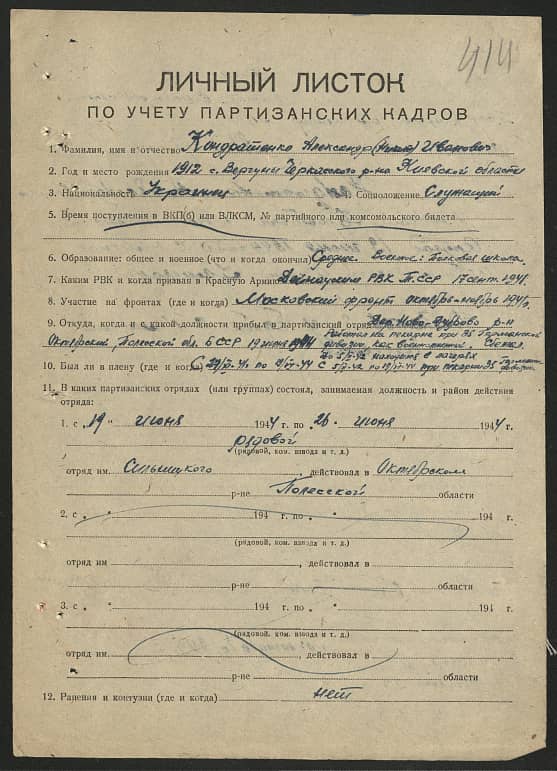 414
ЛИЧНЫЙ ЛИСТОК
ПО УЧЕТУ ПАРТИЗАНСКИХ КАДРОВ
1. Фамилия, имя и отчество Кондратенко Александр Иванович
2. Год и место рождения 1912 с. Вергуны Черкасского р-на Киевской области
3. Национальность Украинец 4. Соцположение Служащий
5. Время поступления в ВКП(б) или ВЛКСМ, № партийного или комсомольского билета
6. Образование: общее и военное (что и когда окончил) Среднее. Военное: Полковая школа
7. Каким РВК и когда призван в Красную Армию РВК Т.ССР 17 сент. 1941.
8. Участие на фронтах (где и когда) Московский фронт октябрь-ноябрь 1941г.
9. Откуда, когда и с какой должности прибыл в партизанский отряд Дер. Ново-Дуброво р-н
Октябрьский, Полесской обл. БССР 19 июня 1944 Работал на пекарне при 35 Германской
дивизии, как военнопленный.
10. Был ли в плену (где и когда) До 5/V-42 находился в лагерях
С при пекарне 35 дивизии
11. В каких партизанских отрядах (или группах) состоял, занимаемая должность и район действия
отряда:
1. с „19“ июня 1944 г. по „26“ июня 1944 г.
рядовой
(рядовой, ком. взвода и т. д.)
отряд им. Сильницкого, действовал в Октябрьском
р-не Полесской области
2. с „ “ 194 г. по „ “ 194 г.
(рядовой, ком. взвода и т. д.)
отряд им , действовал в
р-не области
3. с „ “ 194 г. по „ “ 194 г.
(рядовой, ком. взвода и т. д.)
отряд им. , действовал в
р-не области
12. Ранения и контузии (где и когда) нет